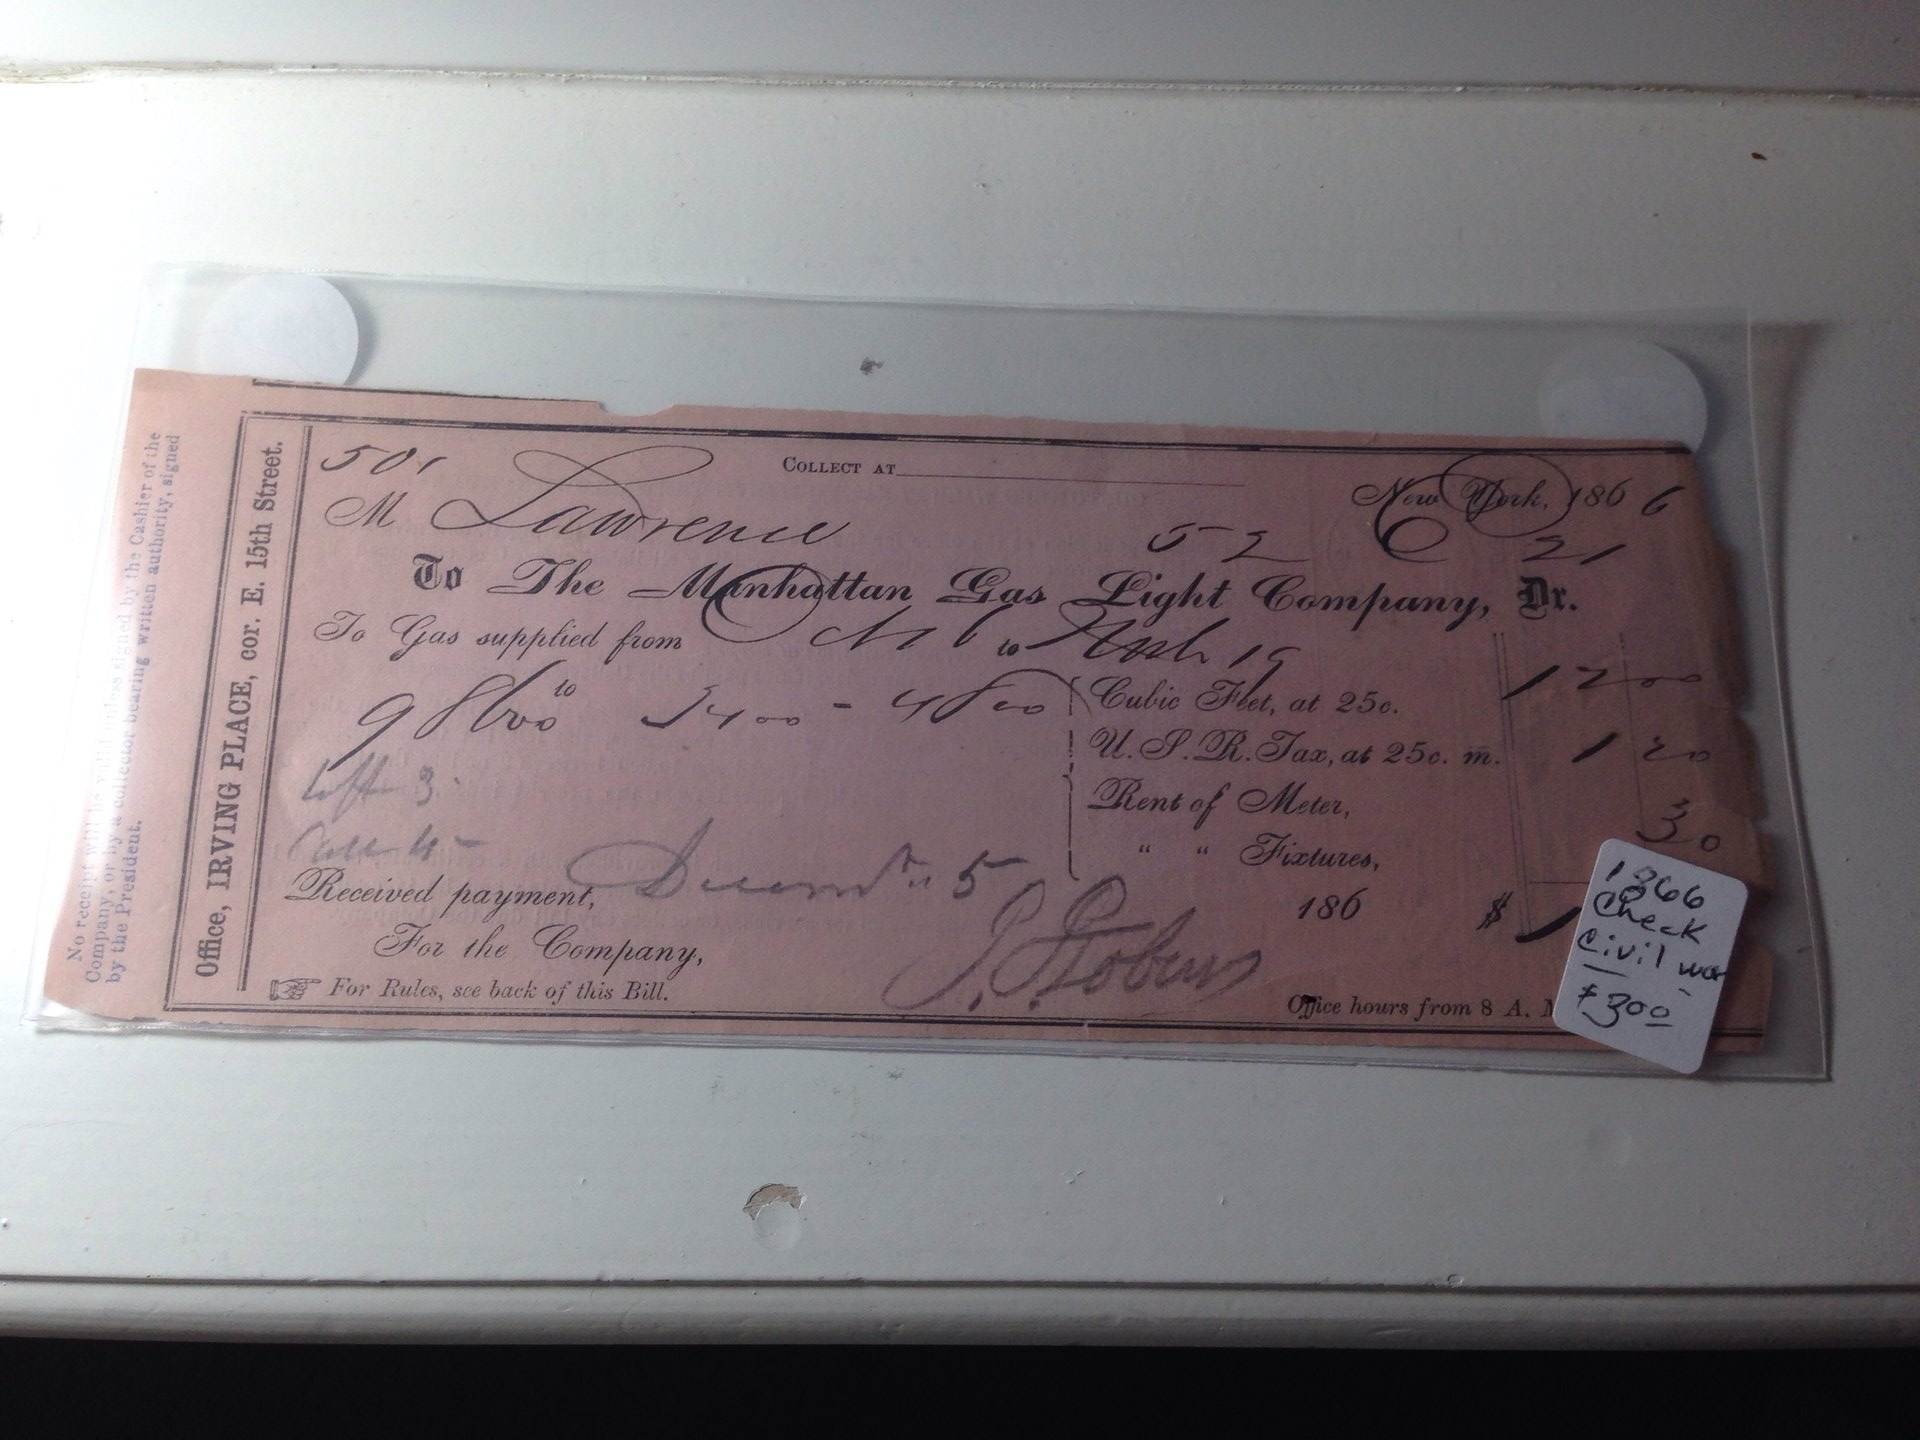 No receipt will be valid unless signed by the Cashier of the
Company, or by a collector bearing written authority, signed
by the President.
Office, IRVING PLACE, cor. E. 15th Street.
501
COLLECT AT
New York, 1866
M Lawrence 52 21
To The Manhattan Gas Light Company, Dr.
To Gas supplied from to 19
to 5400 - 4800 Cubic Feet, at 25c. 12 00
U. S. R. Tax, at 25c. m. 1 20
Rent of Meter, 30
" " Fixtures,
Received payment, 5 186 $ 1
For the Company,
For Rules, see back of this Bill.
Office hours from 8 A. M
1866
Check
Civil war
$300